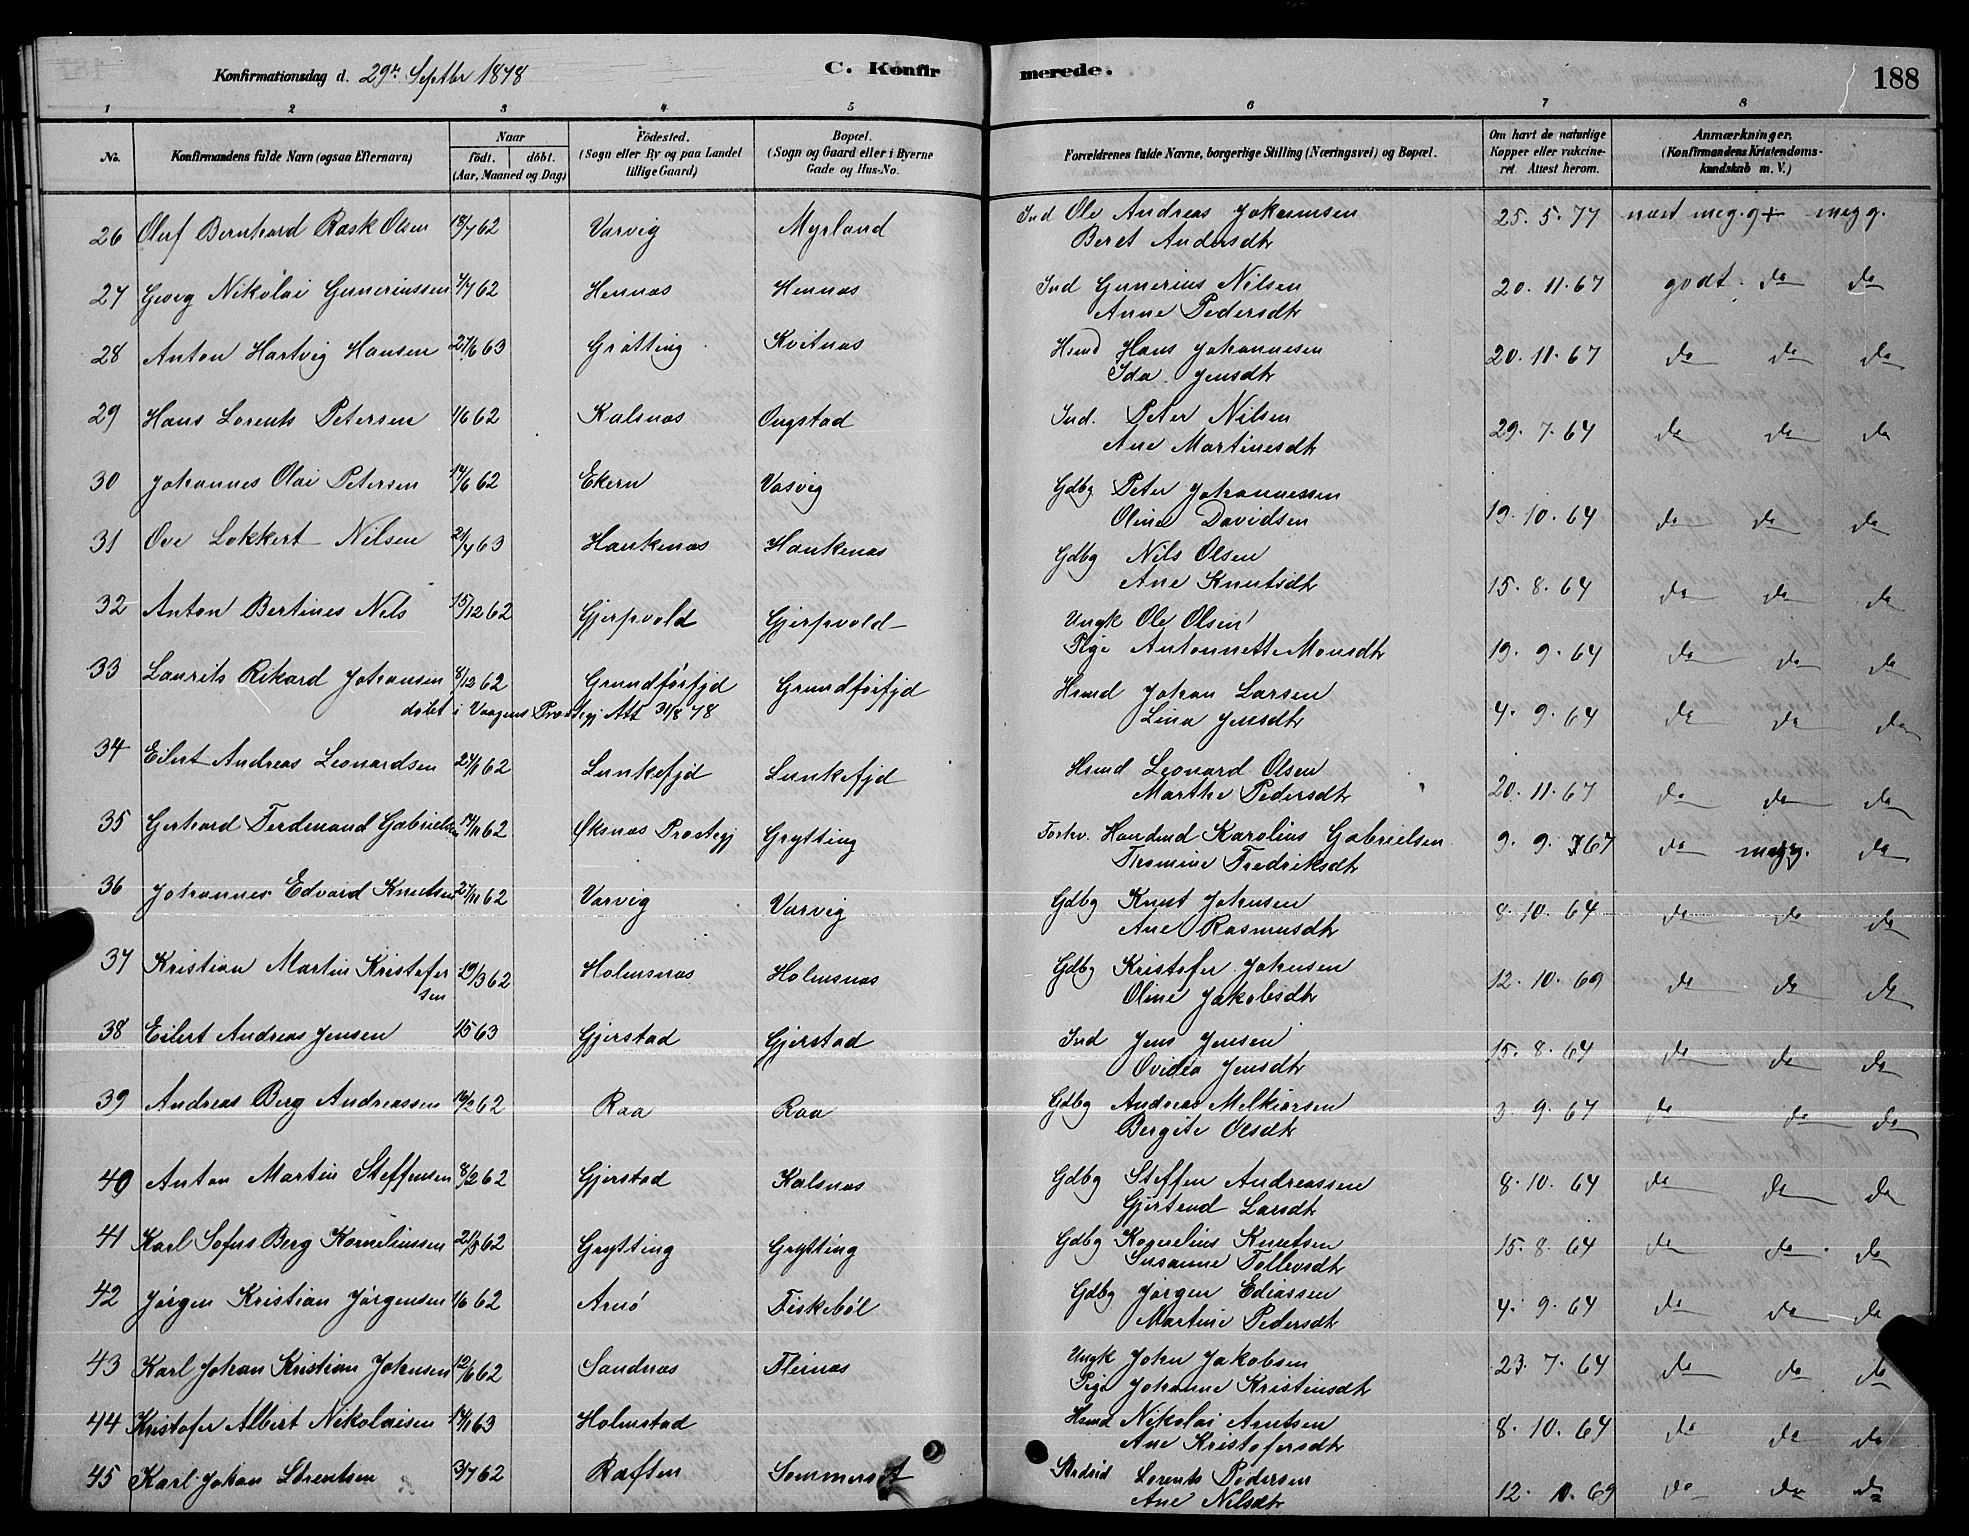 Konfirmationsdag d. 29de Septbr 1878 C. Konfirmerede. 188
1 2 3 4 5 6 7 8
No. Konfirmandens fulde Navn (ogsaa Efternavn) Naar født. døbt. (Aar, Maaned og Dag) Födested. (Sogn eller By og paa Landet tillige Gaard) Bopæl. (Sogn og Gaard eller i Byerne Gade og Hus-No. Forældrenes fulde Navne, borgerlige Stilling (Næringsvei) og Bopæl. Om havt de naturlige Kopper eller vakcineret Attest herom. Anmærkninger. (Konfirmandens Kristendomskundskab m. V.)
26 Oluf Bernhard Rask Olsen 18/7 62 Varvig Myrland Ind Ole Andreas Johannsen 25. 5. 77 næst meg. g + meg g.
Beret Andersdtr
27 Georg Nikolai Guneriussen 4/7 62 Hennæs Hennæs Ind Gunerius Nilsen 20. 11. 67 godt. do do
Anne Pedersdtr
28 Anton Hartvig Hansen 27/6 63 Gråtting Kvitnæs Hsmd Hans Johannesen 20. 11. 67 do do do
Ida Jensdtr
29 Hans Lorents Petersen 1/6 62 Kalsnæs Ongstad Ind. Peter Nilsen 29. 7. 64 do do do
Ane Martinesdtr
30 Johannes Olai Petersen 14/6 62 Ekern Vasvig Gdbg Peter Johannessen 19. 10. 64 do do do
Oline Davidsen
31 Ove Lokkert Nilsen 21/4 63 Haukenæs Haukenæs Gdbg Nils Olsen 15. 8. 64 do do do
Ane Knutsdtr
32 Anton Bertines Nils 15/12 62 Gjerpvold Gjerpvold Ungk Ole Olsen 19. 9. 64 do do do
Pige Antonnette Monsdtr
33 Laurits Rikard Johansen 8/12 62 Grundförfjd Grundförfjd Hsmd Johan Larsen 4. 9. 64 do do do
døbt i Vaagens Prestegj Att 31/8 78 Lina Jensdtr
34 Eilert Andreas Leonardsen 24/1 62 Lunkefjd Lunkefjd Hsmd Leonard Olsen 20. 11. 67 do do do
Marthe Pedersdtr
35 Gerhard Ferdinand Gabrielsen 14/11 62 Øksnæs Prestegj Grytting Forhv. Handlmd Karolius Gabrielsen 9. 9. 67 do meg g. do
Thomine Fredriksdtr
36 Johannes Edvard Knutsen 27/11 62 Varvig Varvig Gdbg Knut Johnsen 8. 10. 64 do do do
Ane Rasmusdtr
37 Kristian Martin Kristofersen 19/3 62 Holmsnæs Holmsnæs Gdbg Kristofer Johnsen 12. 10. 69 do do do
Oline Jakobsdtr
38 Eilert Andreas Jensen 1/5 63 Gjerstad Gjerstad Ind Jens Jensen 15. 8. 64 do do do
Ovidea Jensdtr
39 Andreas Berg Andreassen 16/2 62 Raa Raa Gdbg Andreas Melkiorsen 3. 9. 67 do do do
Bergite Olsdtr
40 Anton Martin Steffensen 8/2 62 Gjerstad Kalsnæs Gdbg Steffen Andreassen 8. 10. 64 do do do
Gjertrud Larsdtr
41 Karl Sofus Berg Korneliussen 21/3 62 Grytting Grytting Gdbg Kornelius Knutsen 15. 8. 64 do do do
Susanne Tollevsdtr
42 Jørgen Kristian Jørgensen 1/6 62 Arnö Fiskeböl Gdbg Jørgen Ediassen 4. 9. 64 do do do
Martine Pedersdtr
43 Karl Johan Kristian Johnsen 12/6 62 Sandnæs Fleinæs Ungk John Jakobsen 23. 7. 64 do do do
Pige Johanne Kristinsdtr
44 Kristofer Albert Nikolaisen 14/1 63 Holmstad Hsmd Nikolai Arntsen 8. 10. 64 do do do
Ane Kristofersdtr
45 Karl Johan Lorentsen 3/7 62 Raften Sommerset Lorents Pedersen 12. 10. 69 do do do
Ane Nilsdtr